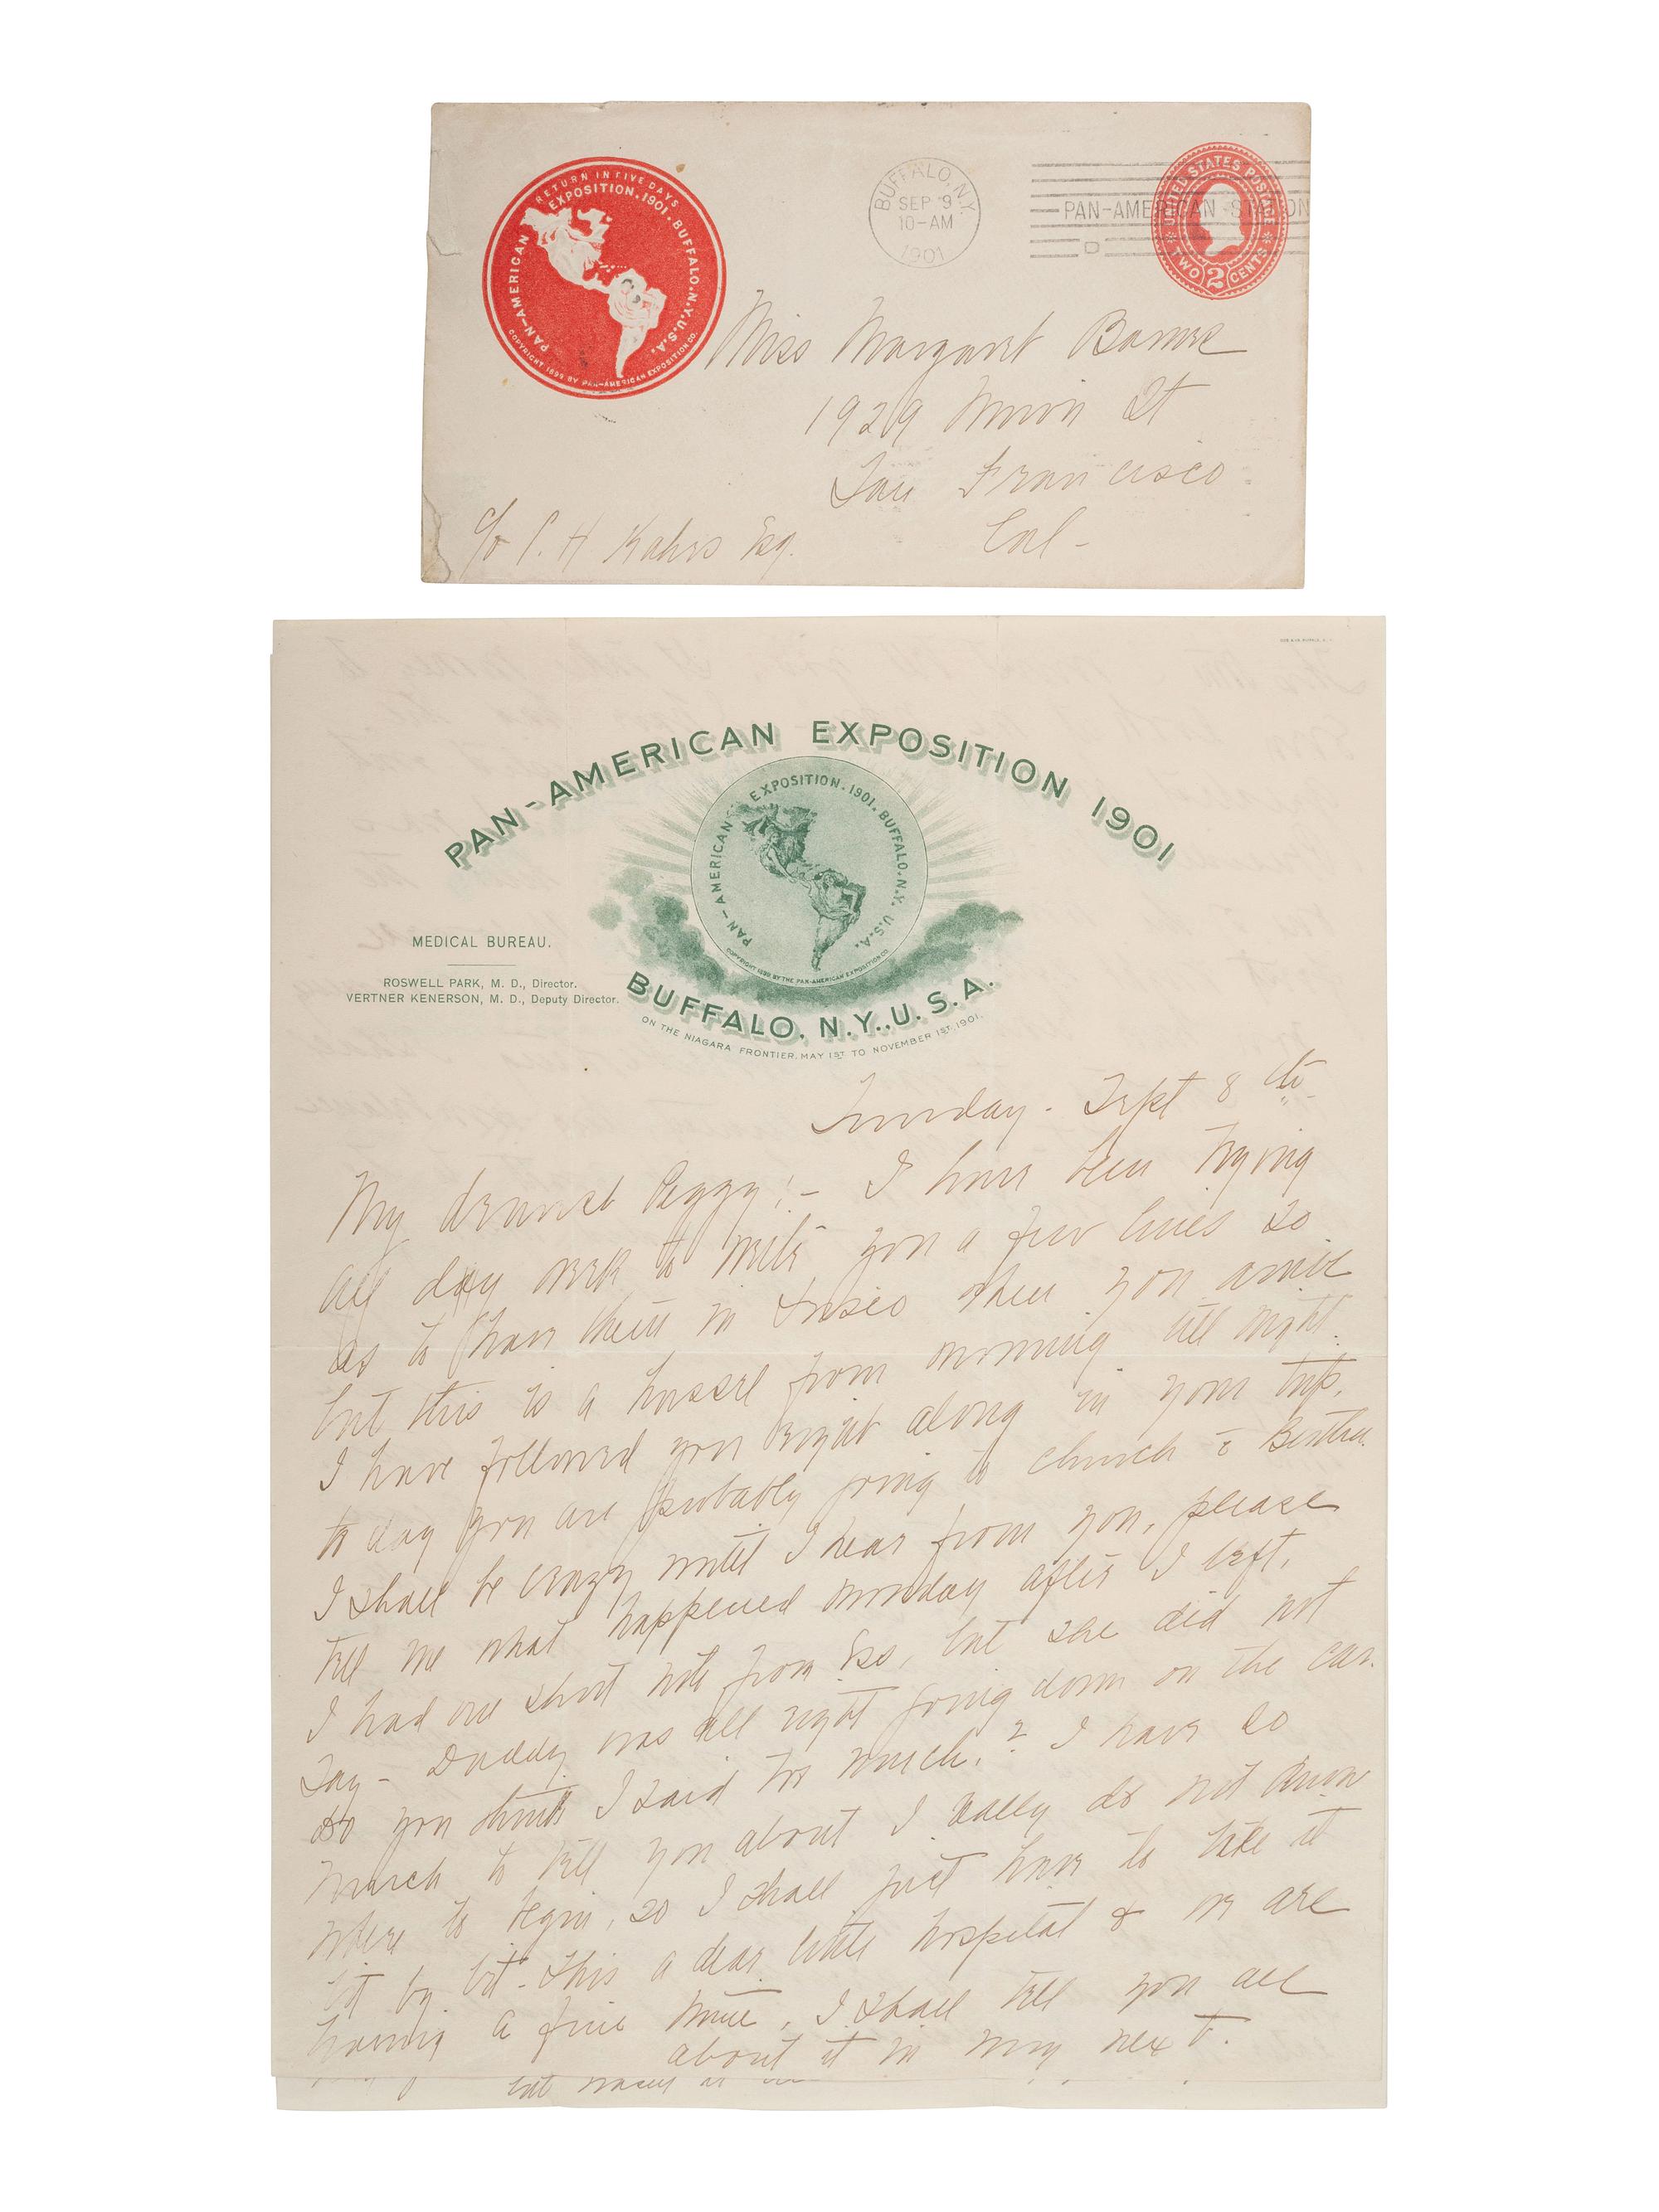 RETURN IN FIVE DAYS
PAN-AMERICAN EXPOSITION. 1901. BUFFALO. N.Y. U.S.A.
COPYRIGHT 1899 BY PAN-AMERICAN EXPOSITION CO.
BUFFALO, N.Y.
SEP 9
10-AM
1901
PAN-AMERICAN STATION
UNITED STATES POSTAGE
TWO 2 CENTS
Miss Margaret
1929 Union St
San Francisco
Cal-
c/o P. H Kahrs Esq.
PAN-AMERICAN EXPOSITION 1901
PAN-AMERICAN EXPOSITION. 1901. BUFFALO. N.Y. U.S.A.
COPYRIGHT 1899 BY THE PAN-AMERICAN EXPOSITION CO.
MEDICAL BUREAU.
ROSWELL PARK, M. D., Director.
VERTNER KENERSON, M. D., Deputy Director.
BUFFALO, N.Y., U.S.A.
ON THE NIAGARA FRONTIER, MAY 1ST TO NOVEMBER 1ST, 1901.
Sunday - Sept 8th
My dearest Peggy:- I have been trying
all day week to write you a few lines so
as to have them in Frisco when you arrive
but this is a hussel from morning till night.
I have followed you right along in your trip,
to day you are probably going to church c̄ Bertha.
I shall be crazy until I hear from you, please
tell me what happened Monday after I left.
I had one short note from Ess, but she did not
say - Daddy was all right going down on the car.
do you think I said too much.? I have so
much to tell you about I really do not know
where to begin, so I shall just have to take it
bit by bit. This a dear little hospital & we are
having a fine time, I shall tell you all
about it in my next.